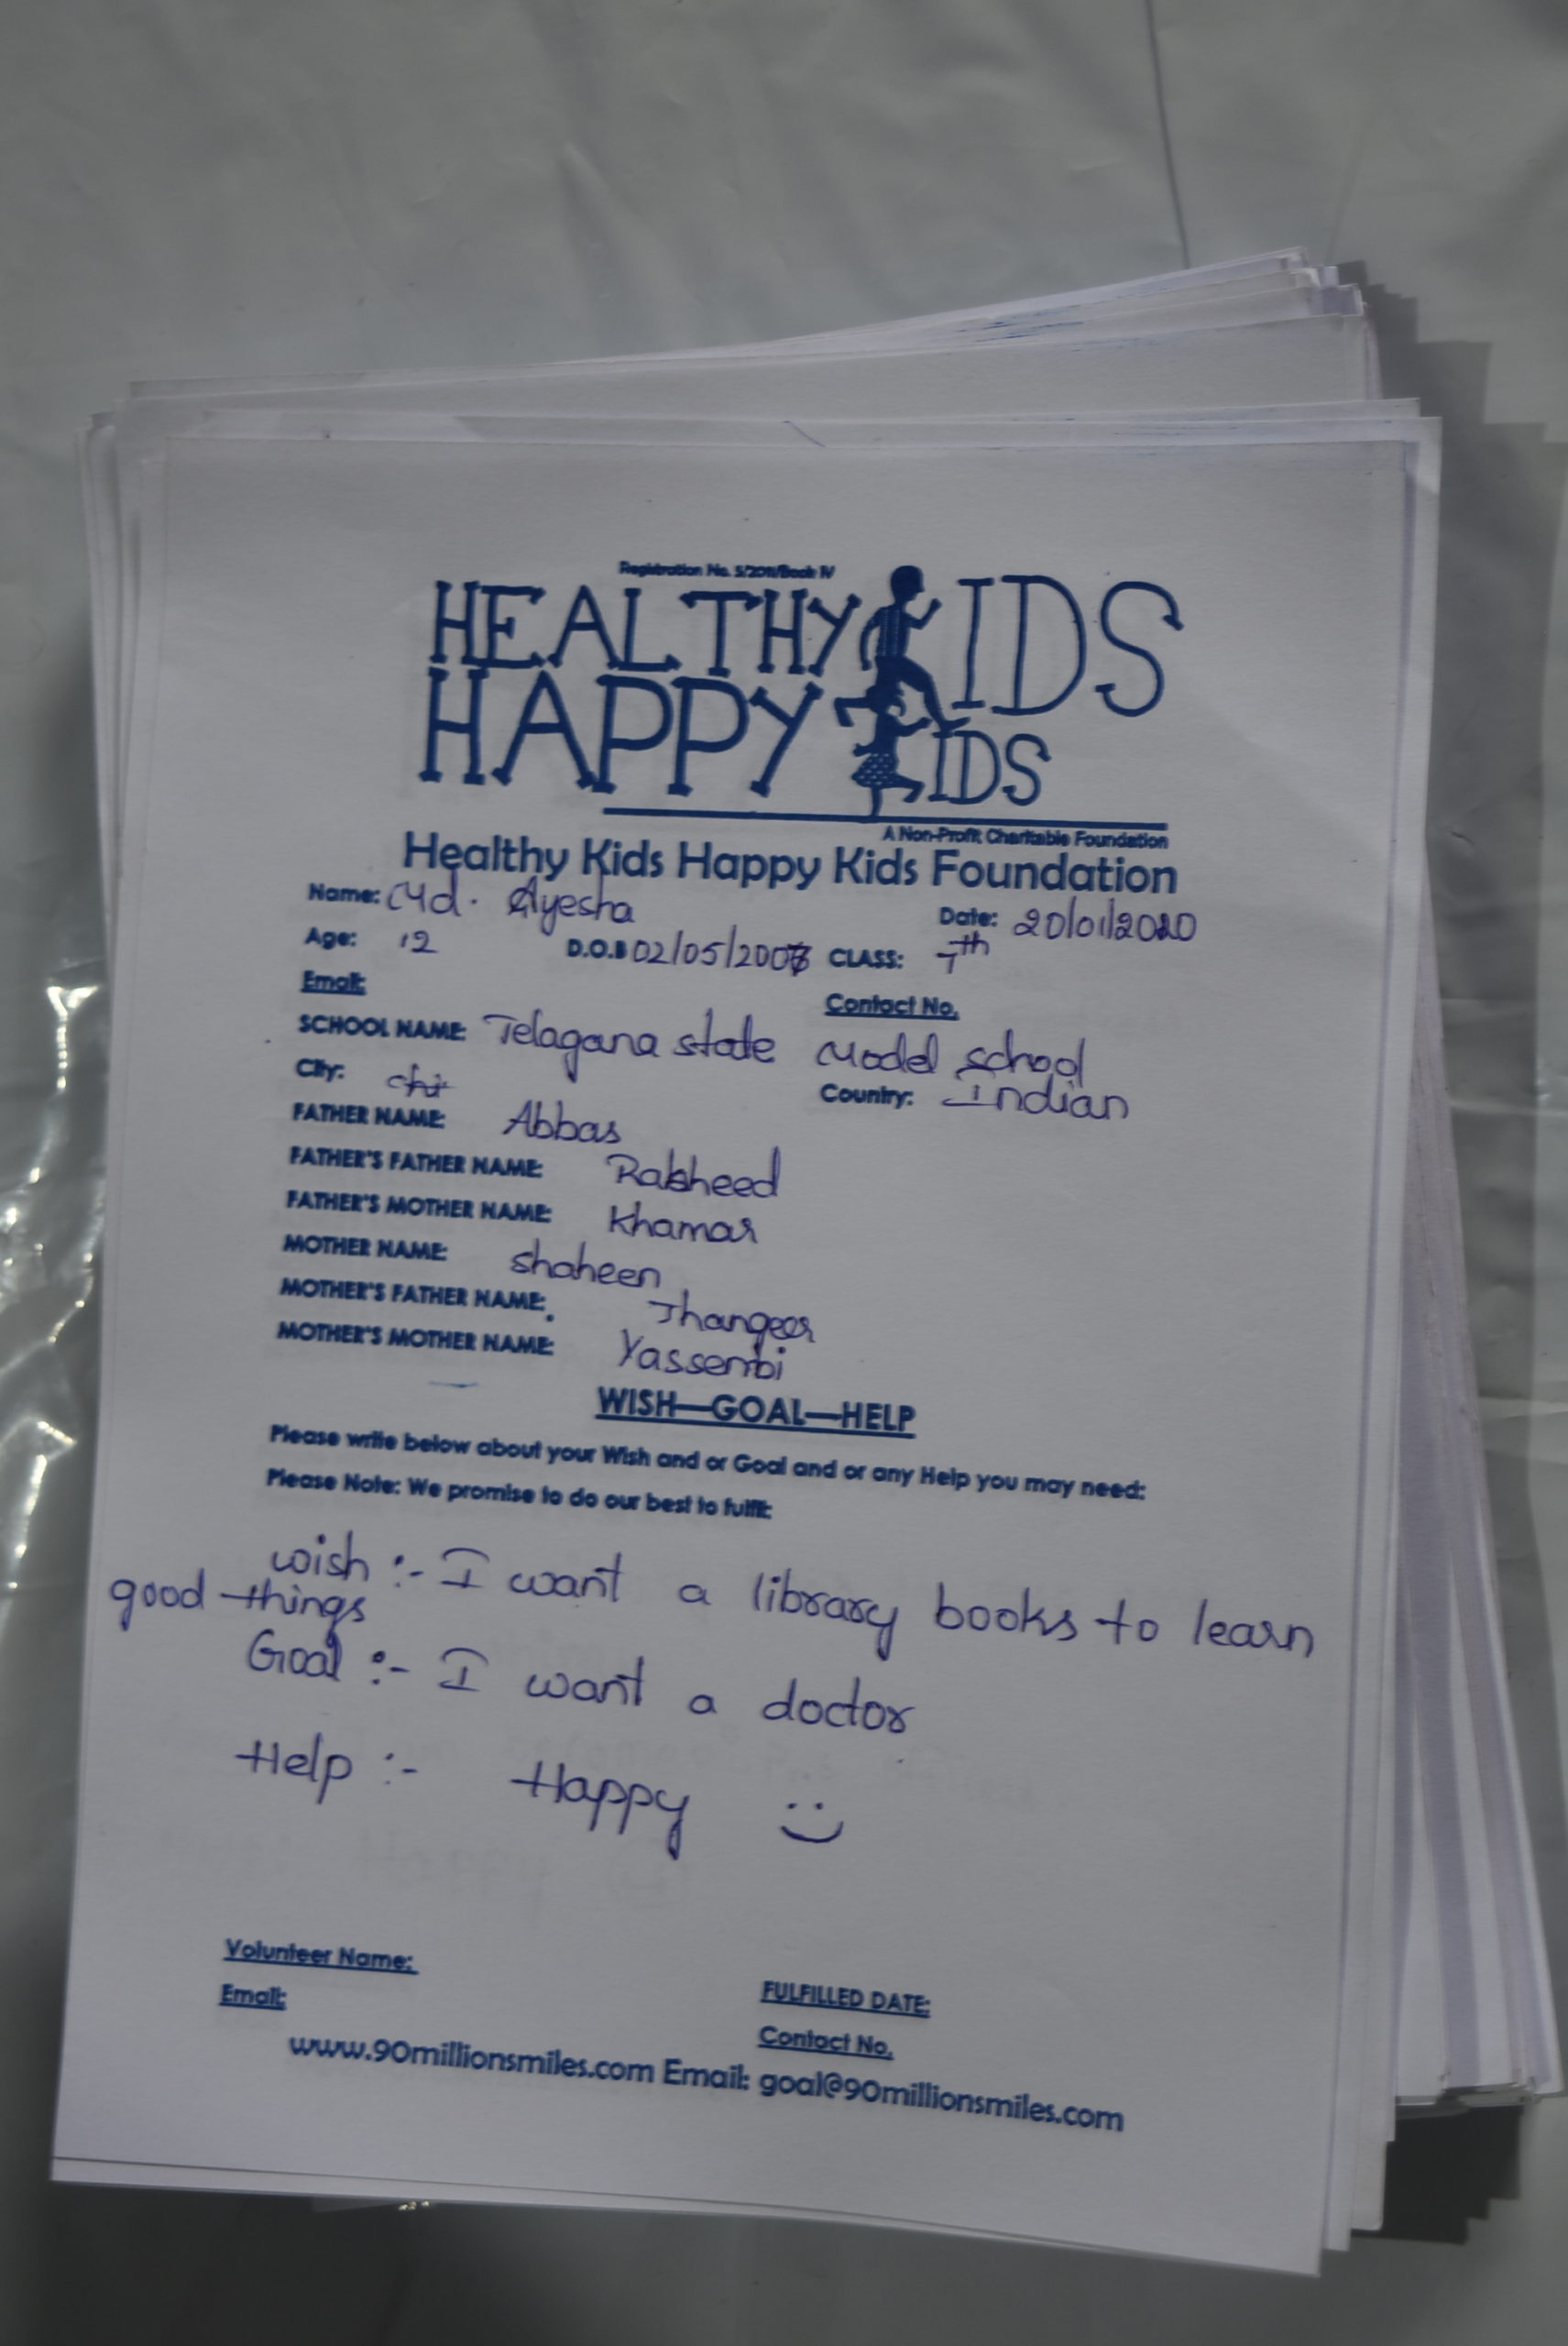 Registration No. 5/2011/Book IV
HEALTHY KIDS
HAPPY KIDS
A Non-Profit Charitable Foundation
Healthy Kids Happy Kids Foundation
Name: Md. Ayesha Date: 20/01/2020
Age: 12 D.O.B 02/05/2007 CLASS: 7th
Email: Contact No.
SCHOOL NAME: Telagana state Model school
City: Country: Indian
FATHER NAME: Abbas
FATHER'S FATHER NAME: Rabsheed
FATHER'S MOTHER NAME: Khamar
MOTHER NAME: shaheen
MOTHER'S FATHER NAME: Jhangeer
MOTHER'S MOTHER NAME: Yassembi
WISH—GOAL—HELP
Please write below about your Wish and or Goal and or any Help you may need:
Please Note: We promise to do our best to fulfil:
wish :- I want a library books to learn
good things
Goal :- I want a doctor
Help :- Happy
Volunteer Name: FULFILLED DATE:
Email: Contact No.
www.90millionsmiles.com Email: goal@90millionsmiles.com